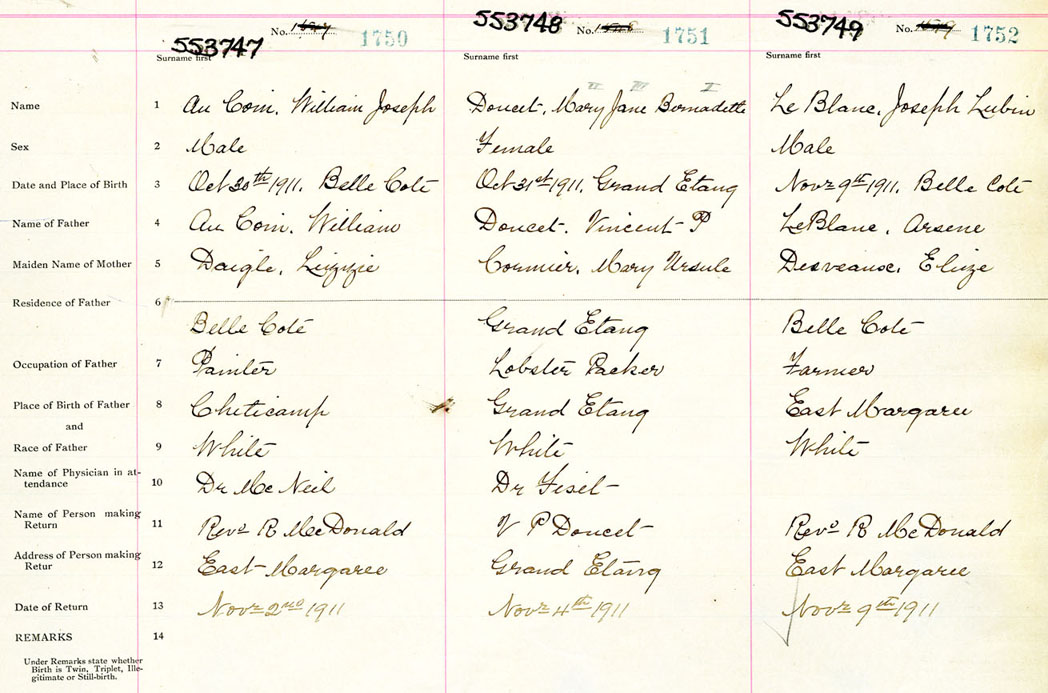 553747 No. 1750
553748 No. 1751
553749 No. 1752
Surname first Surname first Surname first
II III I
Name 1 Au Coin, William Joseph Doucet, Mary Jane Bernadette Le Blanc, Joseph Lubin
Sex 2 Male Female Male
Date and Place of Birth 3 Oct 30th 1911, Belle Coté Oct 31st 1911, Grand Etang Novr 9th 1911, Belle Coté
Name of Father 4 Au Coin, William Doucet, Vincent P LeBlanc, Arsene
Maiden Name of Mother 5 Daigle, Lizzie Cormier, Mary Ursule Desveause, Elize
Residence of Father 6
Belle Coté Grand Etang Belle Coté
Occupation of Father 7 Painter Lobster Packer Farmer
Place of Birth of Father 8 Cheticamp Grand Etang East Margaree
and
Race of Father 9 White White White
Name of Physician in at-
tendance 10 Dr McNeil Dr Fiset
Name of Person making
Return 11 Revd R McDonald V P Doucet Revd R McDonald
Address of Person making
Retur 12 East Margaree Grand Etang East Margaree
Date of Return 13 Novr 2nd 1911 Novr 4th 1911 Novr 9th 1911
REMARKS 14
Under Remarks state whether
Birth is Twin, Triplet, Ille-
gitimate or Still-birth.